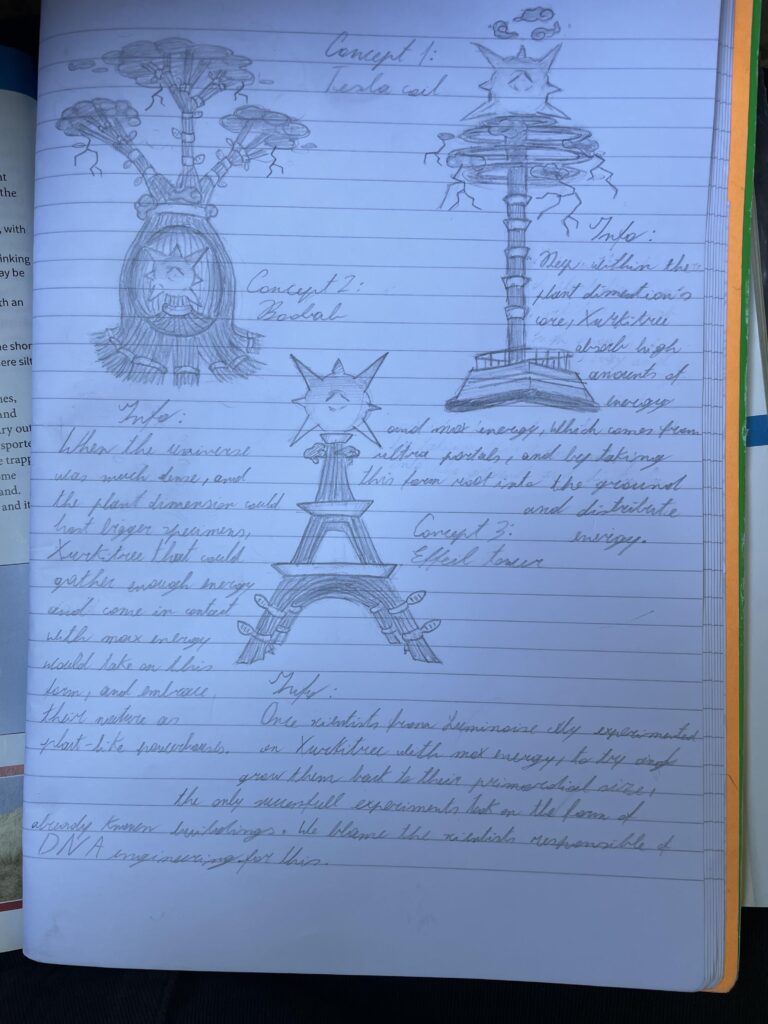 Concept 1:
Tesla coil
Info:
Deep within the
plant dimention's
core, Xurkitree
absorb high
amounts of
energy
and max energy, which comes from
ultra portals, and by taking
this form root into the ground
and distribute
energy.
Concept 2:
Baobab
Info:
When the universe
was much dense, and
the plant dimension could
host bigger specimens,
Xurkitree that could
gather enough energy
and come in contact
with max energy
would take on this
form, and embrace,
their nature as
plant-like powerhouses.
Concept 3:
Effeil tower
Info:
Once scientists from Luminoise city experimented
on Xurkitree with max energy, to try and
grow them back to their primordial size,
the only successfull experiments took on the form of
already known buildings. We blame the scientists responsible of
DNA engineering for this.
at
the
, with
inking
ay be
th an
e shor
ere silt
nes,
and
ry out
sporte
e trapp
ome
and.
and it